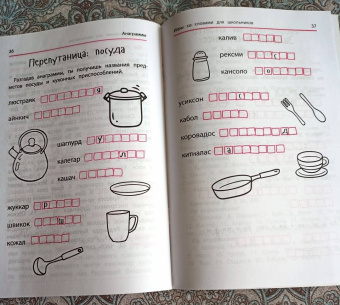 36
Анаграммы
Перепутаница: посуда
Разгадав анаграммы, ты получишь названия пред-
метов посуды и кухонных приспособлений.
люстраяк я
айнкич
шалпурд у
калетар л
кашач
жуккар р
швикок ш
кожал
Игры со словами для школьников
37
калив
рексми с
кансоло о
усиксон с
кабол
коровадос д
китналас а